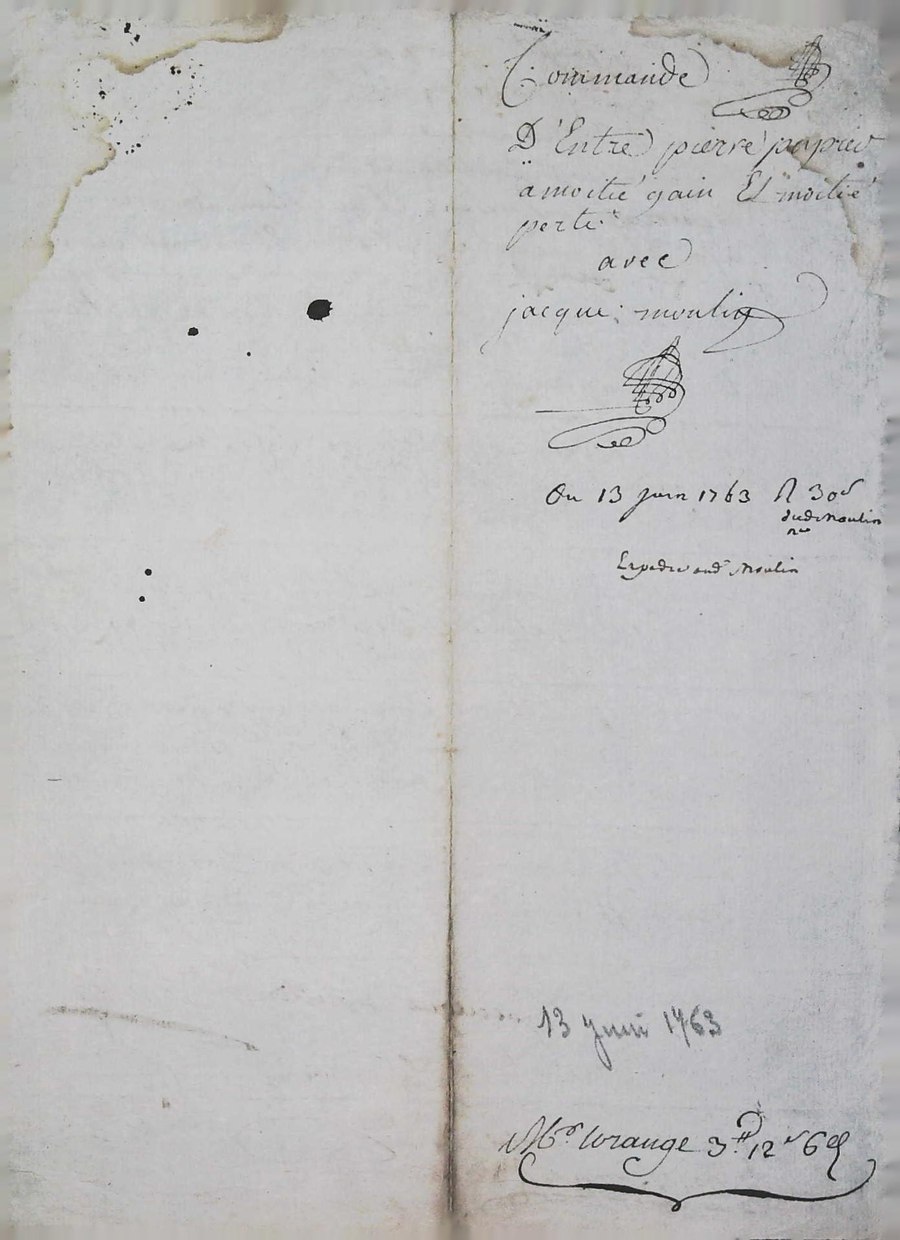 Commande
D'Entre pierre
a moitié gain Et moitié
perte
avec
jacque moulin
Du 13 juin 1763 R 30s
dud. Moulin
Expedié aud. Moulin
13 juin 1763
Mr. 3# 12s 6d